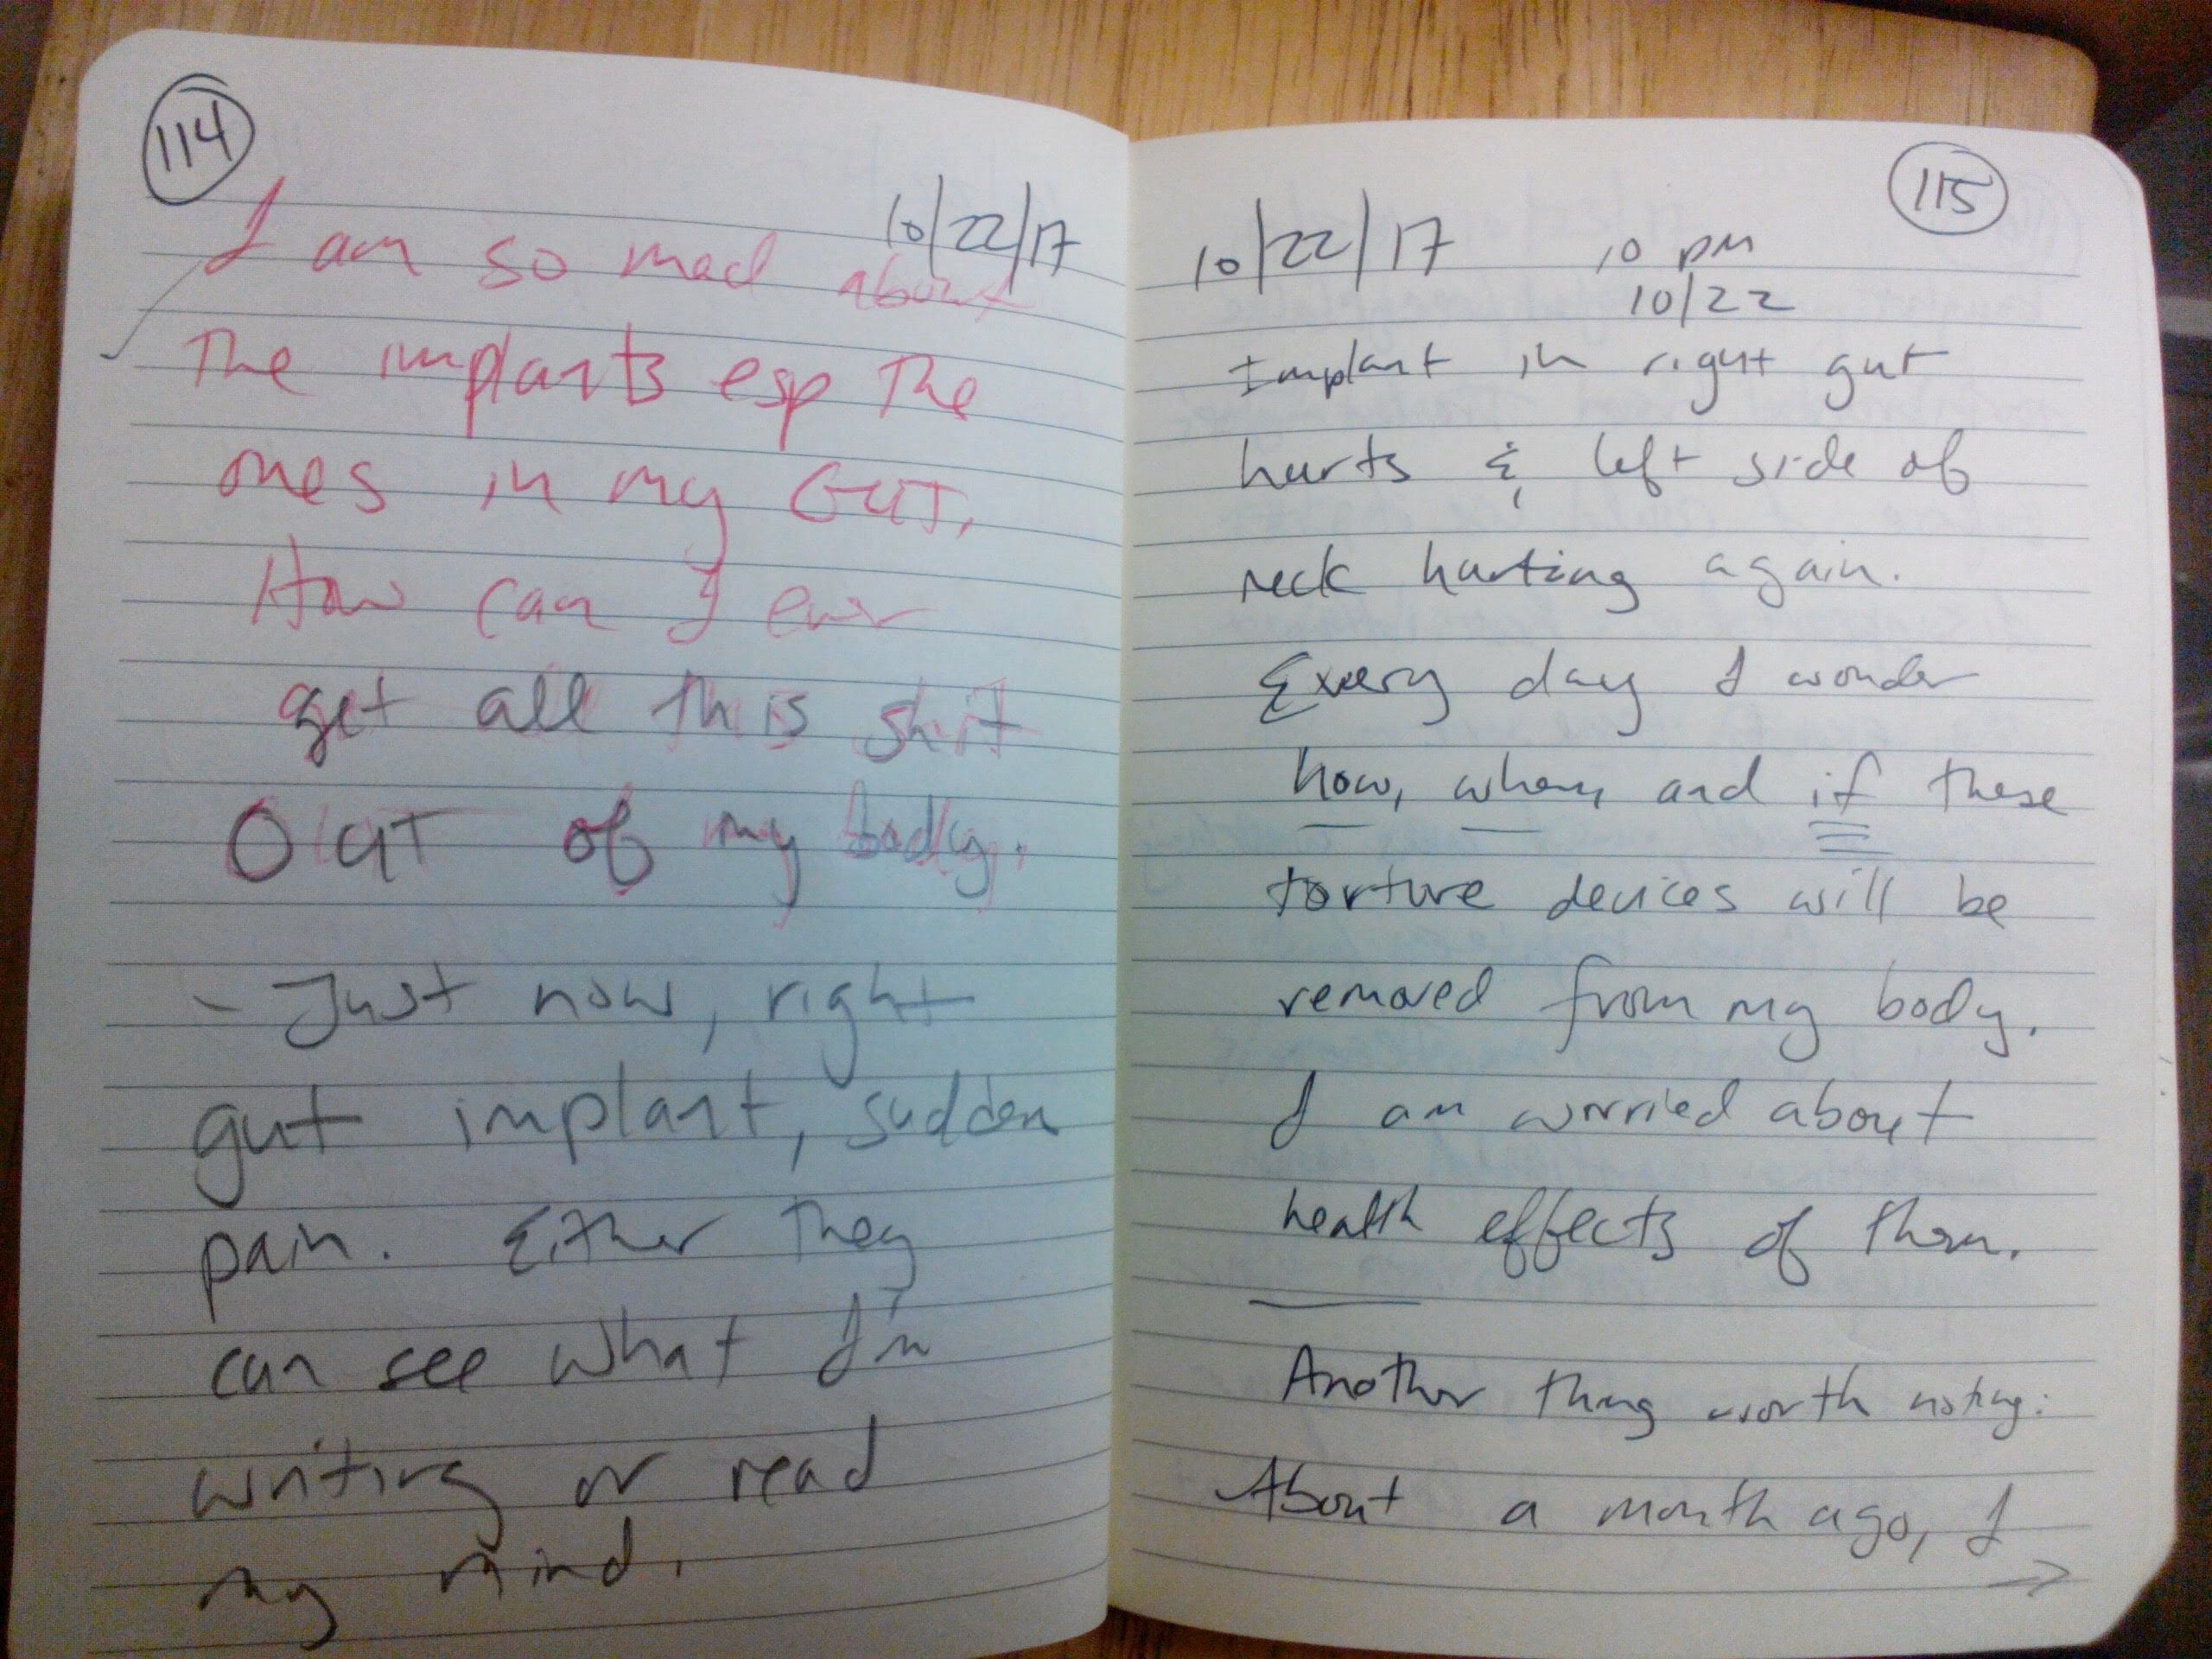 114
10/22/17
I am so mad about
The implants esp the
ones in my GUT,
How can I ever
get all this shit
OUT of my body.
- Just now, right
gut implant, sudden
pain. Either they
can see what I'm
writing or read
my mind.
115
10/22/17 10 pm
10/22
Implant in right gut
hurts & left side of
neck hurting again.
Every day I wonder
how, when, and if these
torture devices will be
removed from my body.
I am worried about
health effects of them.
Another thing worth noting:
About a month ago, I
→